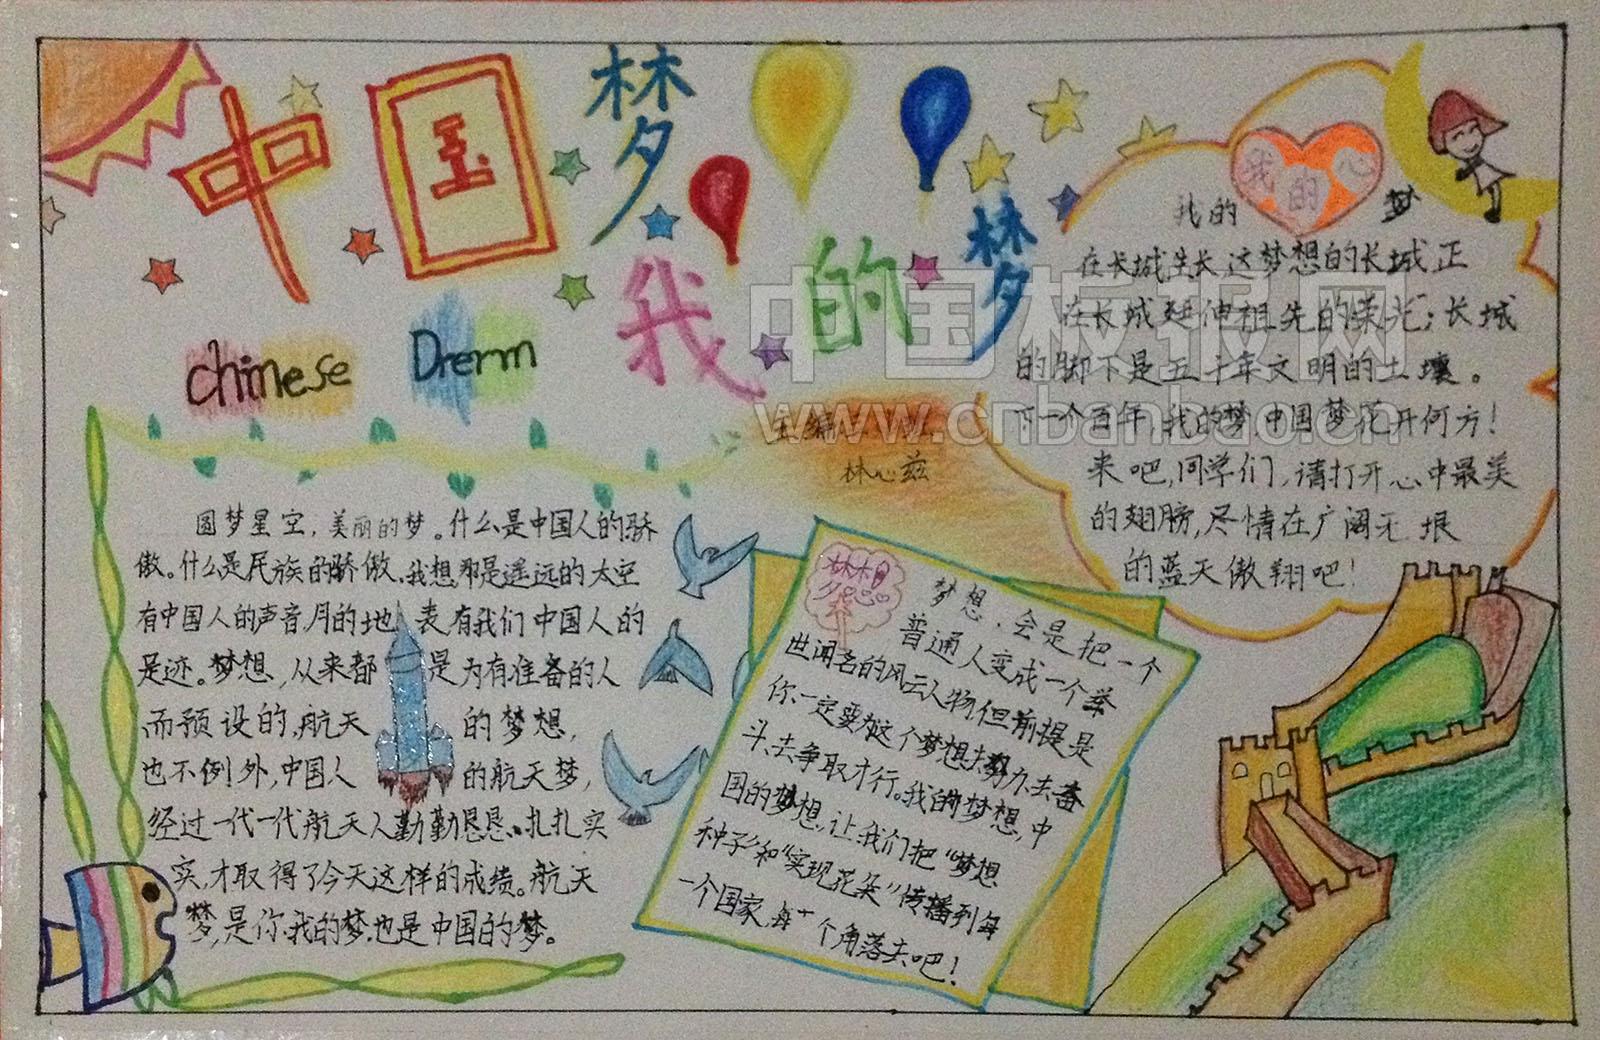 中国梦
我的梦
chinese Drerm
主编
林心兹
我的
我的心
梦
在长城生长,这梦想的长城正
在长城延伸祖先的荣光;长城
的脚下是五千年文明的土壤。
下一个百年,我的梦,中国梦花开何方!
来吧,同学们,请打开心中最美
的翅膀,尽情在广阔无垠
的蓝天傲翔吧!
圆梦星空,美丽的梦。什么是中国人的骄
傲。什么是民族的骄傲,我想那是遥远的太空
有中国人的声音,月的地表有我们中国人的
足迹。梦想,从来都是为有准备的人
而预设的,航天的梦想,
也不例外,中国人的航天梦,
经过一代一代航天人勤勤恳恳、扎扎实
实,才取得了今天这样的成绩。航天
梦,是你我的梦,也是中国的梦。
梦想
梦想,会是把一个
普通人变成一个举
世闻名的风云人物,但前提是
你一定要为这个梦想去努力,去奋
斗,去争取才行。我的梦想,中
国的梦想,让我们把“梦想
种子”和“实现花朵”传播到每
一个国家,每个角落去吧!
中国板报网
www.cnbanbao.cn